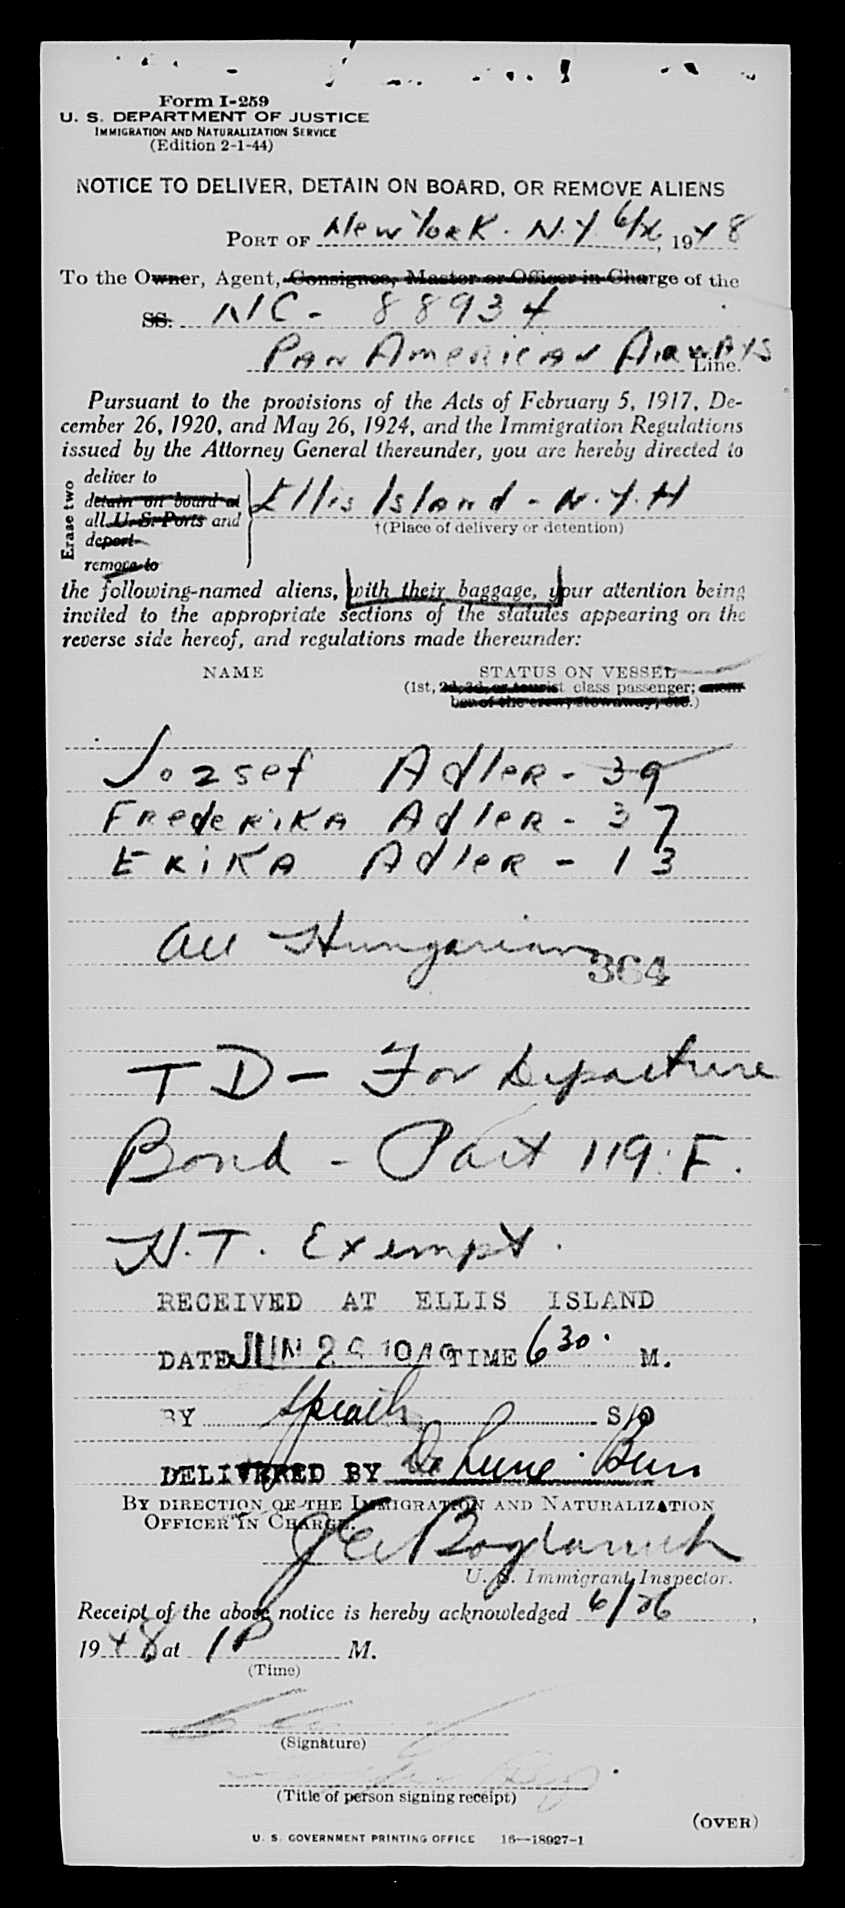 Form I-259
U. S. DEPARTMENT OF JUSTICE
IMMIGRATION AND NATURALIZATION SERVICE
(Edition 2-1-44)
NOTICE TO DELIVER, DETAIN ON BOARD, OR REMOVE ALIENS
PORT OF New York. N.Y 6/26, 1948
To the Owner, Agent, Consignee, Master or Officer in Charge of the
SS. N/C - 88934
Pan American Airways Line.
Pursuant to the provisions of the Acts of February 5, 1917, De-
cember 26, 1920, and May 26, 1924, and the Immigration Regulations
issued by the Attorney General thereunder, you are hereby directed to
Erase two
deliver to
detain on board at
all U. S. Ports and
deport
remove to
Ellis Island - N.Y.H
†(Place of delivery or detention)
the following-named aliens, with their baggage, your attention being
invited to the appropriate sections of the statutes appearing on the
reverse side hereof, and regulations made thereunder:
NAME STATUS ON VESSEL
(1st, 2d, 3d, or tourist class passenger; mem-
ber of the crew, stowaway, etc.)
Jozsef Adler - 39
Frederika Adler - 37
Erika Adler - 13
All Hungarian
364
TD - For Departure
Bond - Part 119.F.
H.T. Exempt.
RECEIVED AT ELLIS ISLAND
DATE JUN 26 1948 TIME 6 30. M.
BY S/O
DELIVERED BY
BY DIRECTION OF THE IMMIGRATION AND NATURALIZATION
OFFICER IN CHARGE:
U. S. Immigrant Inspector.
Receipt of the above notice is hereby acknowledged 6/26,
1948, at 1 P M.
(Time)
(Signature)
(Title of person signing receipt)
(OVER)
U. S. GOVERNMENT PRINTING OFFICE 16—18027-1